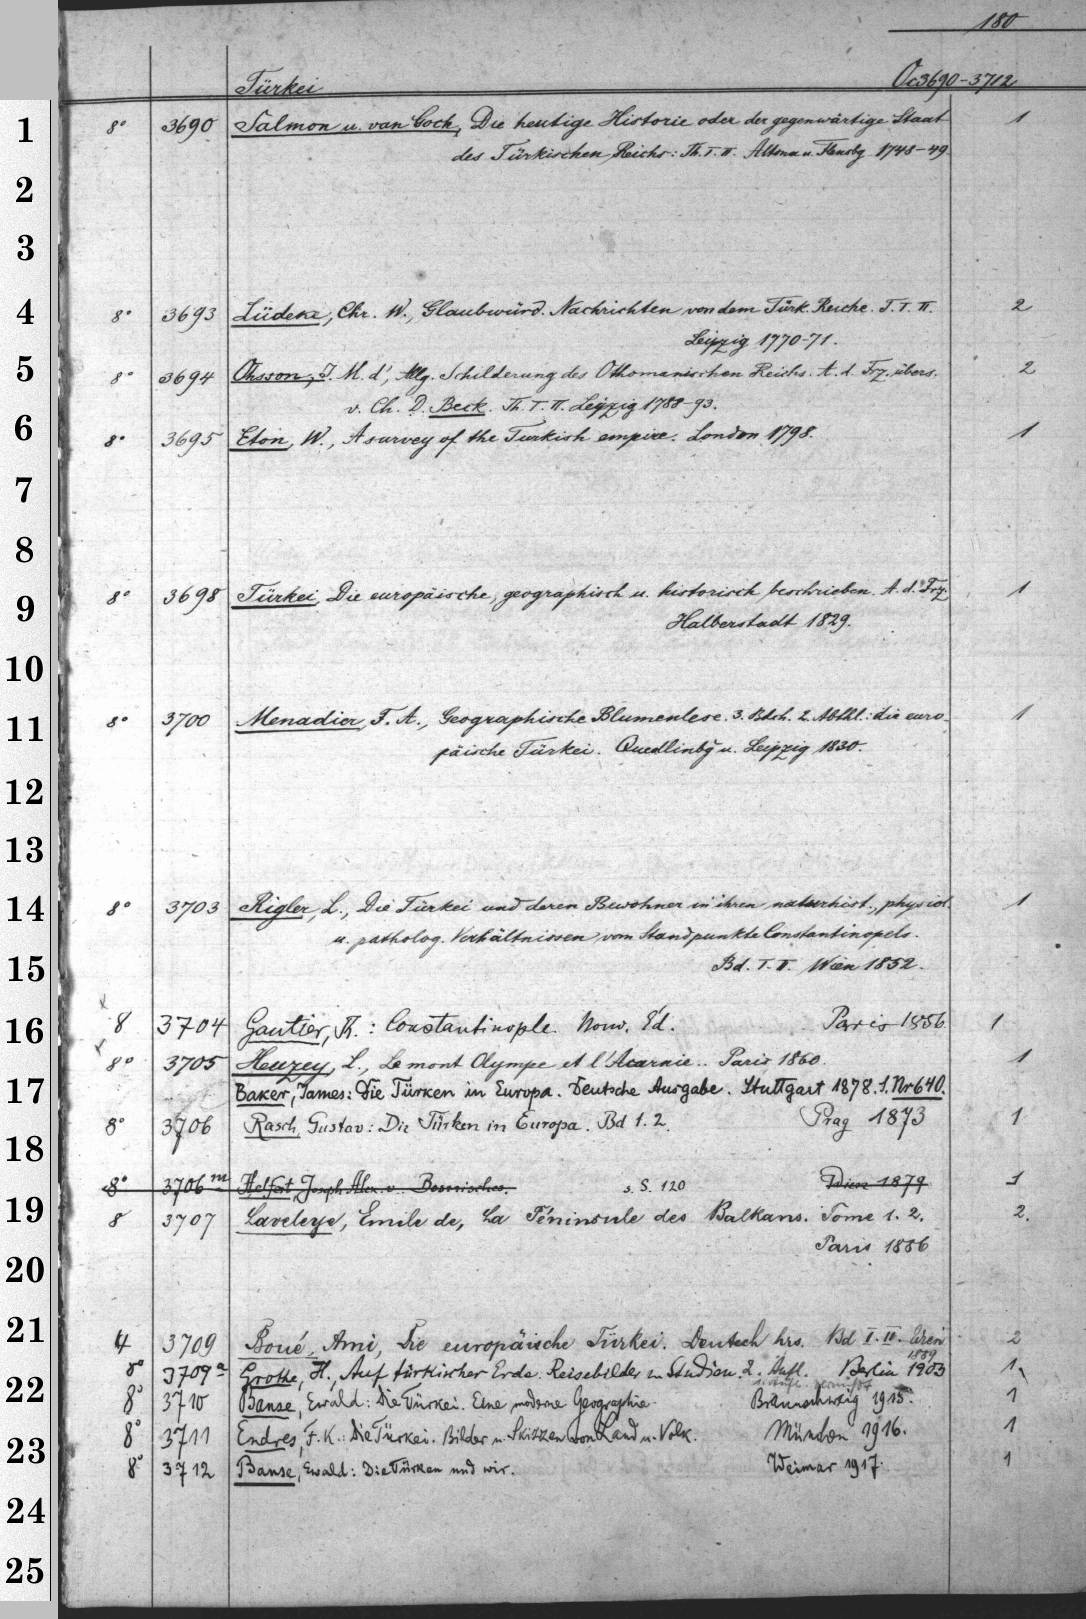 180
Türkei Oc3690-3712
1
8° 3690 Salmon u. van Goch, Die heutige Historie oder der gegenwärtige Staat 1
des Türkischen Reichs: Th. I. II. Altona u. Flensbg 1748-49
2
3
4
8° 3693 Lüdeke, Chr. W., Glaubwürd. Nachrichten von dem Türk. Reiche. T. I. II. 2
Leipzig 1770-71.
5
8° 3694 Ohsson, J. M. d', Allg. Schilderung des Othomanischen Reichs. A. d. Frz. übers. 2
v. Ch. D. Beck. Th. I. II. Leipzig 1788-93.
6
8° 3695 Eton, W., A survey of the Turkish empire. London 1798. 1
7
8
9
8° 3698 Türkei, Die europäische, geographisch u. historisch beschrieben. A. d. Frz. 1
Halberstadt 1829.
10
11
8° 3700 Menadier, F. A., Geographische Blumenlese. 3. Bdch. 2. Abthl.: die euro- 1
päische Türkei. Quedlinbg u. Leipzig 1830.
12
13
14
8° 3703 Rigler, L., Die Türkei und deren Bewohner in ihren naturhist., physiol. 1
u. patholog. Verhältnissen vom Standpunkte Constantinopels.
15
Bd. I. II. Wien 1852.
16
x 8 3704 Gautier, Th.: Constantinople. Nouv. Éd. Paris 1856. 1
x 8° 3705 Heuzey, L., Le mont Olympe et l'Acarnie.. Paris 1860. 1
17
Baker, James: Die Türken in Europa. Deutsche Ausgabe. Stuttgart 1878. s. Nr 640.
8° 3706 Rasch, Gustav: Die Türken in Europa. Bd 1. 2. Prag 1873 1
18
8° 3706m Helfert, Joseph Alex. v. Bosnisches. s. S. 120 Wien 1879 1
19
8 3707 Laveleye, Emile de, La Péninsule des Balkans. Tome 1. 2. 2.
20
Paris 1886
21
4 3709 Boué, Ami, Die europäische Türkei. Deutsch hrs. Bd I. II. Wien 2
1889
8° 3709a Grothe, H., Auf türkischer Erde. Reisebilder u. Studien. 2. Aufl. Berlin 1903 1
22
8° 3710 Banse, Ewald: Die Türkei. Eine moderne Geographie. Braunschweig 1915. 1
8° 3711 Endres, F. K.: Die Türkei. Bilder u. Skizzen von Land u. Volk. München 1916. 1
23
8° 3712 Banse, Ewald: Die Türken und wir. Weimar 1917. 1
24
25